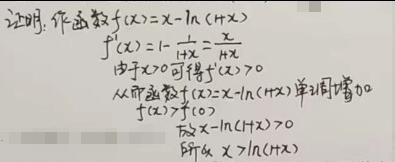 证明: 作函数f(x)=x-ln(1+x)
f'(x)=1-\frac{1}{1+x}=\frac{x}{1+x}
由于x>0可得f'(x)>0
从而函数f(x)=x-ln(1+x)单调增加
f(x)>f(0)
故x-ln(1+x)>0
所以 x>ln(1+x)